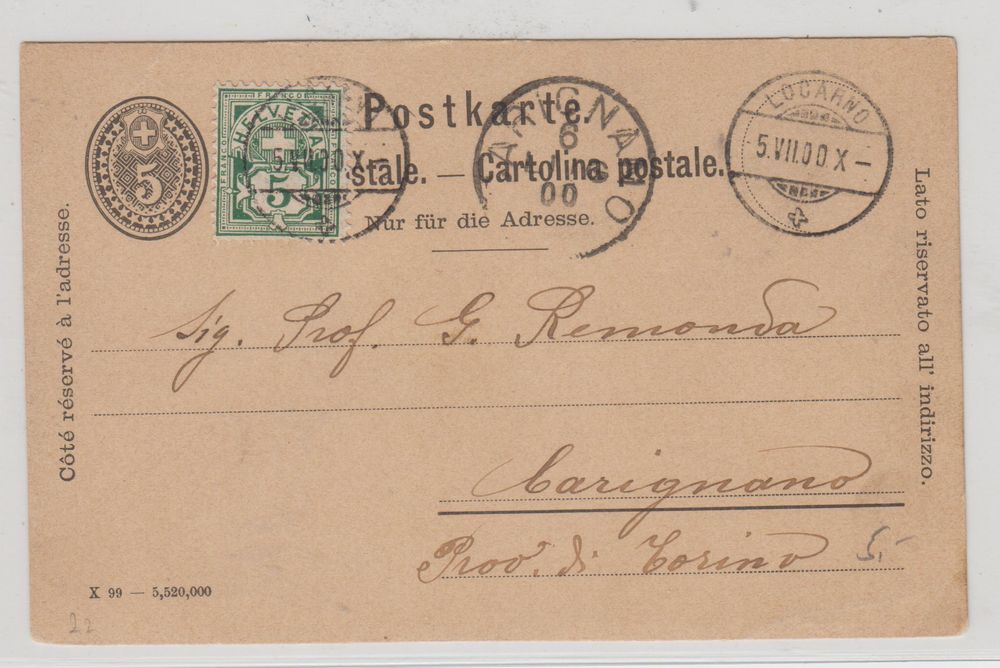 Postkarte.
stale. — Cartolina postale.
Nur für die Adresse.
5
FRANCO
HELVETIA
FRANCO
FRANCO
5
5.VII.00 X –
6
00
LOCARNO
5.VII.00 X –
Côté réservé à l'adresse.
Lato riservato all' indirizzo.
Sig. Prof. G. Remonda
Carignano
Prov. di Torino
5.-
X 99 — 5,520,000
22